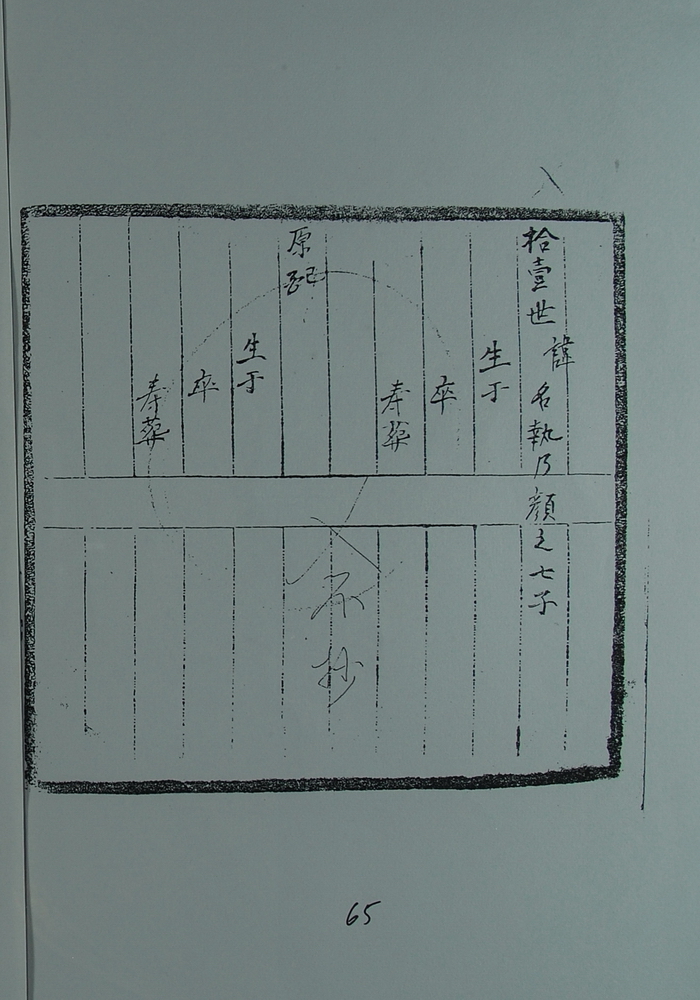 拾壹世 諱名執乃顔之七子
生于
卒
寿葬
原配
生于
卒
寿葬
不抄
65